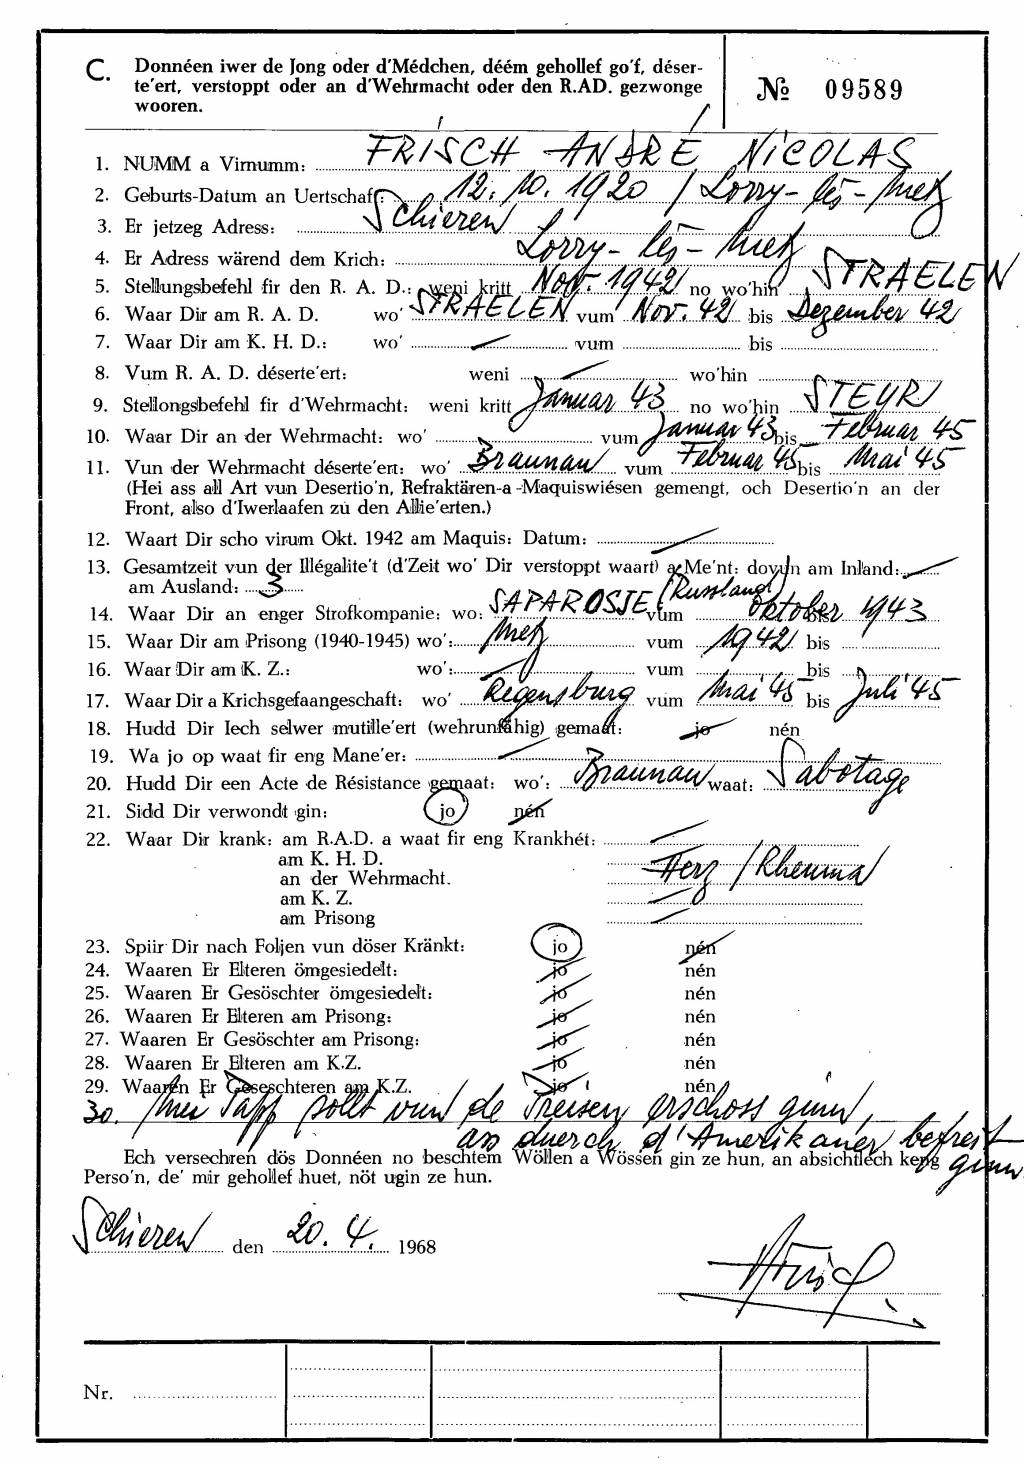 C. Donnéen iwer de Jong oder d'Médchen, déém gehollef go'f, déser-
te'ert, verstoppt oder an d'Wehrmacht oder den R.AD. gezwonge
wooren.
№ 09589
1. NUMM a Virnumm: FRISCH ANDRÉ NICOLAS
2. Geburts-Datum an Uertschaft: 12. 10. 1920 / Lorry-lès-Metz
3. Er jetzeg Adress: Schieren
4. Er Adress wärend dem Krich: Lorry-lès-Metz
5. Stellungsbefehl fir den R. A. D.: weni kritt Nov. 1942 no wo'hin STRAELEN
6. Waar Dir am R. A. D. wo' STRAELEN vum Nov. 42 bis Dezember 42
7. Waar Dir am K. H. D.: wo' — vum bis
8. Vum R. A. D. déserte'ert: weni — wo'hin
9. Stellongsbefehl fir d'Wehrmacht: weni kritt Januar 43 no wo'hin STEYR
10. Waar Dir an der Wehrmacht: wo' vum Januar 43 bis Februar 45
11. Vun der Wehrmacht déserte'ert: wo' Braunau vum Februar 45 bis Mai 45
(Hei ass all Art vun Desertio'n, Refraktären-a -Maquiswiésen gemengt, och Desertio'n an der
Front, also d'Iwerlaafen zu den Allie'erten.)
12. Waart Dir scho virum Okt. 1942 am Maquis: Datum: —
13. Gesamtzeit vun der Illégalite't (d'Zeit wo' Dir verstoppt waart) a Me'nt: dovun am Inland: —
am Ausland: 3
14. Waar Dir an enger Strofkompanie: wo: SAPAROSJE (Russland) vum Oktober bis 1943
15. Waar Dir am Prisong (1940-1945) wo': Metz vum 1942 bis
16. Waar Dir am K. Z.: wo': — vum — bis —
17. Waar Dir a Krichsgefaangeschaft: wo' Regensburg vum Mai 45 bis Juli 45
18. Hudd Dir Iech selwer mutille'ert (wehrunfähig) gemaat: jo nén
19. Wa jo op waat fir eng Mane'er: —
20. Hudd Dir een Acte de Résistance gemaat: wo': Braunau waat: Sabotage
21. Sidd Dir verwondt gin: jo nén
22. Waar Dir krank: am R.A.D. a waat fir eng Krankhét: —
am K. H. D. —
an der Wehrmacht. Herz / Rheuma
am K. Z. —
am Prisong —
23. Spiir Dir nach Foljen vun döser Kränkt: jo nén
24. Waaren Er Elteren ömgesiedelt: jo nén
25. Waaren Er Gesöschter ömgesiedelt: jo nén
26. Waaren Er Elteren am Prisong: jo nén
27. Waaren Er Gesöschter am Prisong: jo nén
28. Waaren Er Elteren am K.Z. jo nén
29. Waaren Er Geseschteren am K.Z. jo nén
30. Mei Papp sollt vun de Preisen erschoss ginn,
an duerch d'Amerikaner befreit
ginn.
Ech versechren dös Donnéen no beschtem Wöllen a Wössen gin ze hun, an absichtlech keng
Perso'n, de' mir gehollef huet, nöt ugin ze hun.
Schieren den 20. 4. 1968
Nr.